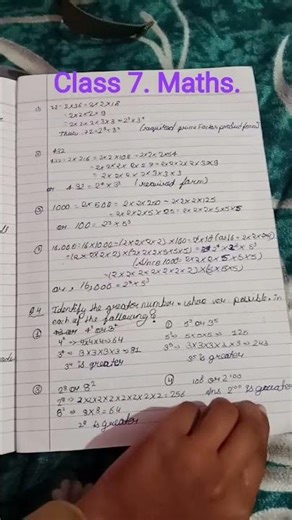 Class 7. Maths.
72 = 2×36 = 2×2×18
= 2×2×2×9
= 2×2×2×3×3 = 2³×3²
Thus 72 = 2³×3² (required prime Factor product form)
432
432 = 2×216 = 2×2×108 = 2×2×2×54
= 2×2×2×2×3×3×3
or 432 = 2⁴×3³ (required form)
1000 = 2×500 = 2×2×250 = 2×2×2×125
= 2×2×2×5×25 = 2×2×2×5×5×5
or 1000 = 2³×5³
16,000 = 16×1000 = (2×2×2×2)×1000
(Since 1000 = 2×2×2×5×5×5)
= (2×2×2×2×2×2×2)×(5×5×5)
or 16,000 = 2⁷×5³
Q.4 Identify the greater number, wherever possible, in
each of the following?
① 4³ or 3⁴
4³ = 4×4×4 = 64
3⁴ = 3×3×3×3 = 81
3⁴ is greater
② 5³ or 3⁵
5³ = 5×5×5 = 125
3⁵ = 3×3×3×3×3 = 243
3⁵ is greater
③ 2⁸ or 8²
2⁸ = 2×2×2×2×2×2×2×2 = 256
8² = 8×8 = 64
2⁸ is greater
④ 100² or 2¹⁰⁰
Ans. 2¹⁰⁰ is greater